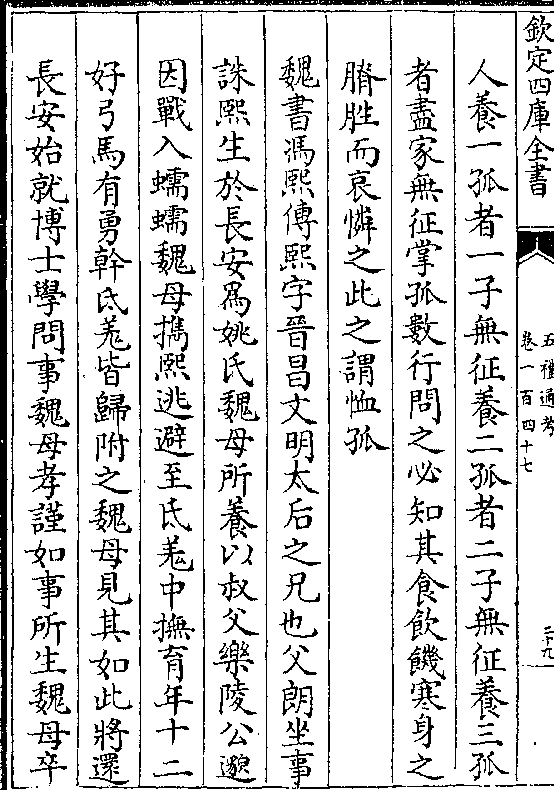 欽定四庫全書
五禮通考
卷一百四十七
二十九
人養一孤者一子無征養二孤者二子無征養三孤
者盡家無征掌孤數行問之必知其食飲饑寒身之
膌胜而哀憐之此之謂恤孤
魏書馮熙傳熙字晉昌文明太后之兄也父朗坐事
誅熙生於長安為姚氏魏母所養以叔父樂陵公邈
因戰入蠕蠕魏母攜熙逃避至氐羌中撫育年十二
好弓馬有勇幹氐羌皆歸附之魏母見其如此將還
長安始就博士學問事魏母孝謹如事所生魏母卒